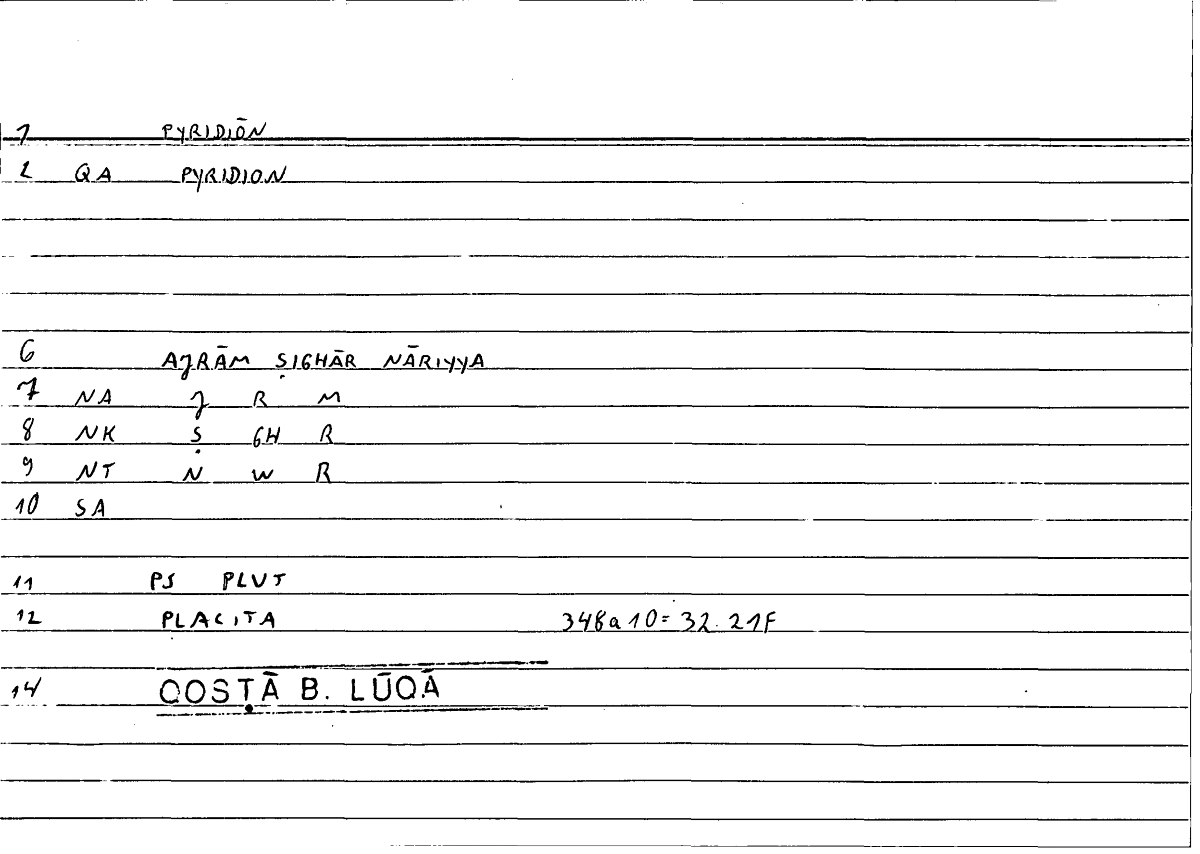 1 PYRIDIŌN
2 QA PYRIDION
6 AJRĀM ṢIGHĀR NĀRIYYA
7 NA J R M
8 NK Ṣ GH R
9 NT N W R
10 SA
11 PS PLUT
12 PLACITA 348a10= 32.21F
14 QOSṬĀ B. LŪQĀ